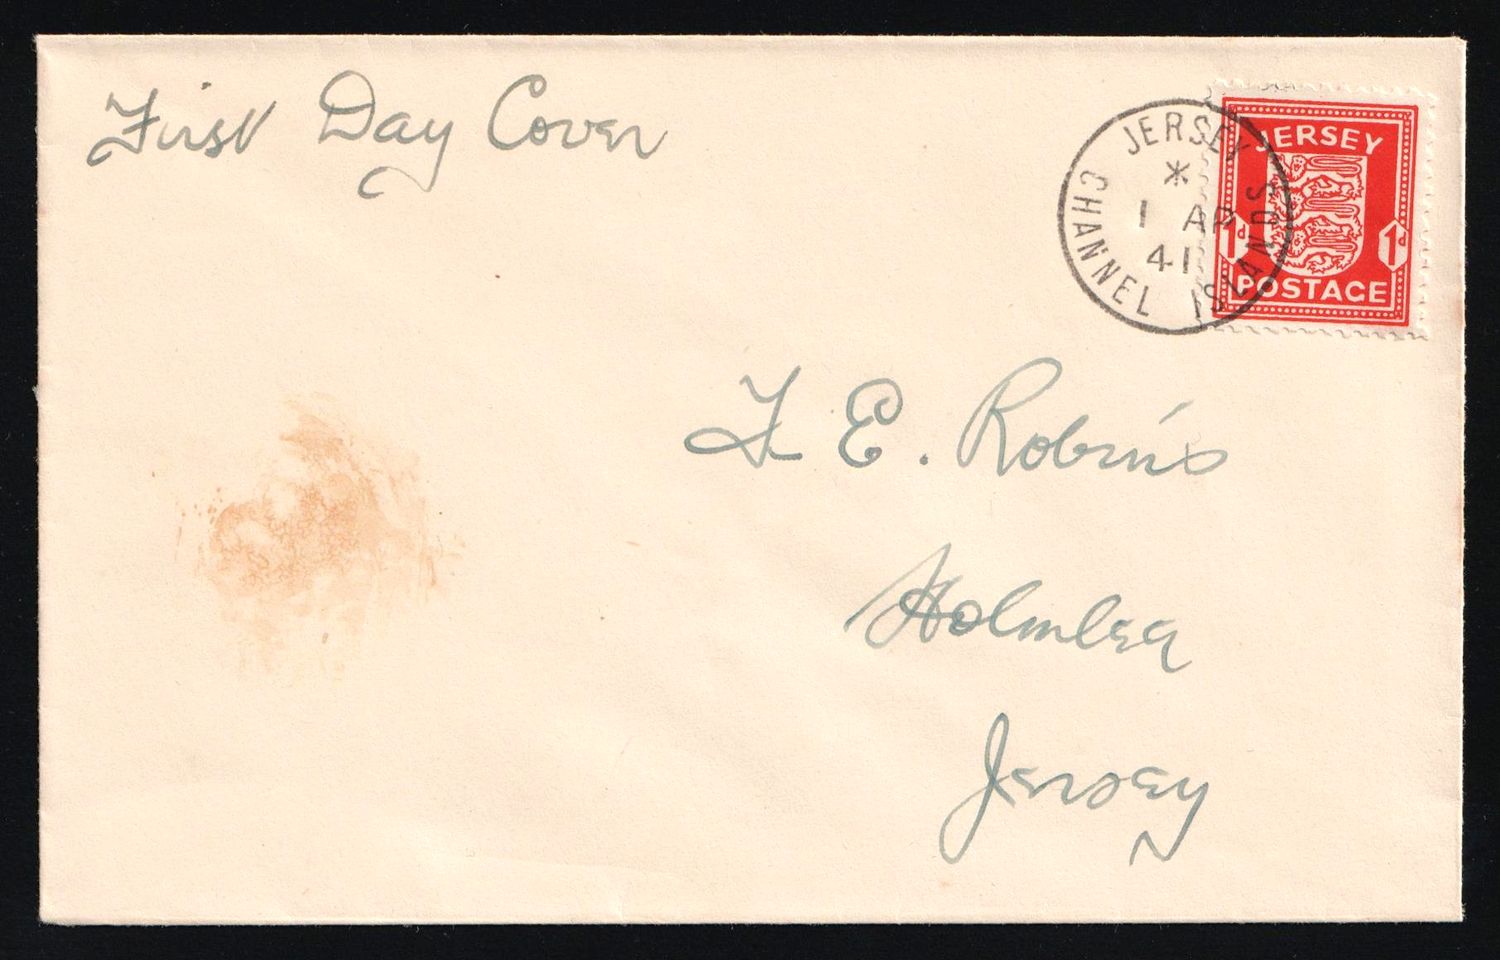 First Day Cover
JERSEY
CHANNEL ISLANDS
1 AP
41
JERSEY
1d 1d
POSTAGE
F E. Robins
Holmlea
Jersey